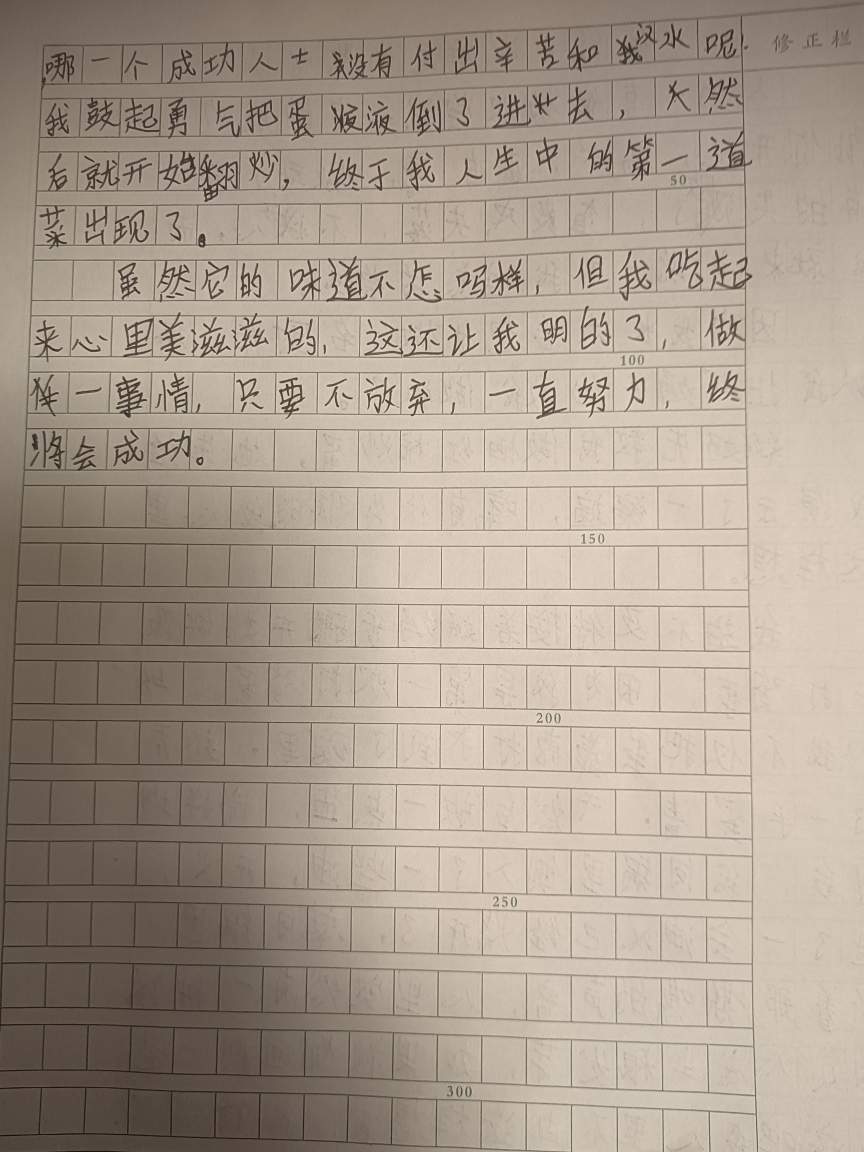 哪一个成功人士没有付出辛苦和汉水呢!
修正栏
我鼓起勇气把蛋液倒了进去，然
后就开始翻炒，终于我人生中的第一道
50
菜出现了。
虽然它的味道不怎吗样，但我吃起
来心里美滋滋的，这还让我明的了，做
100
一事情，只要不放弃，一直努力，终
将会成功。
150
200
250
300